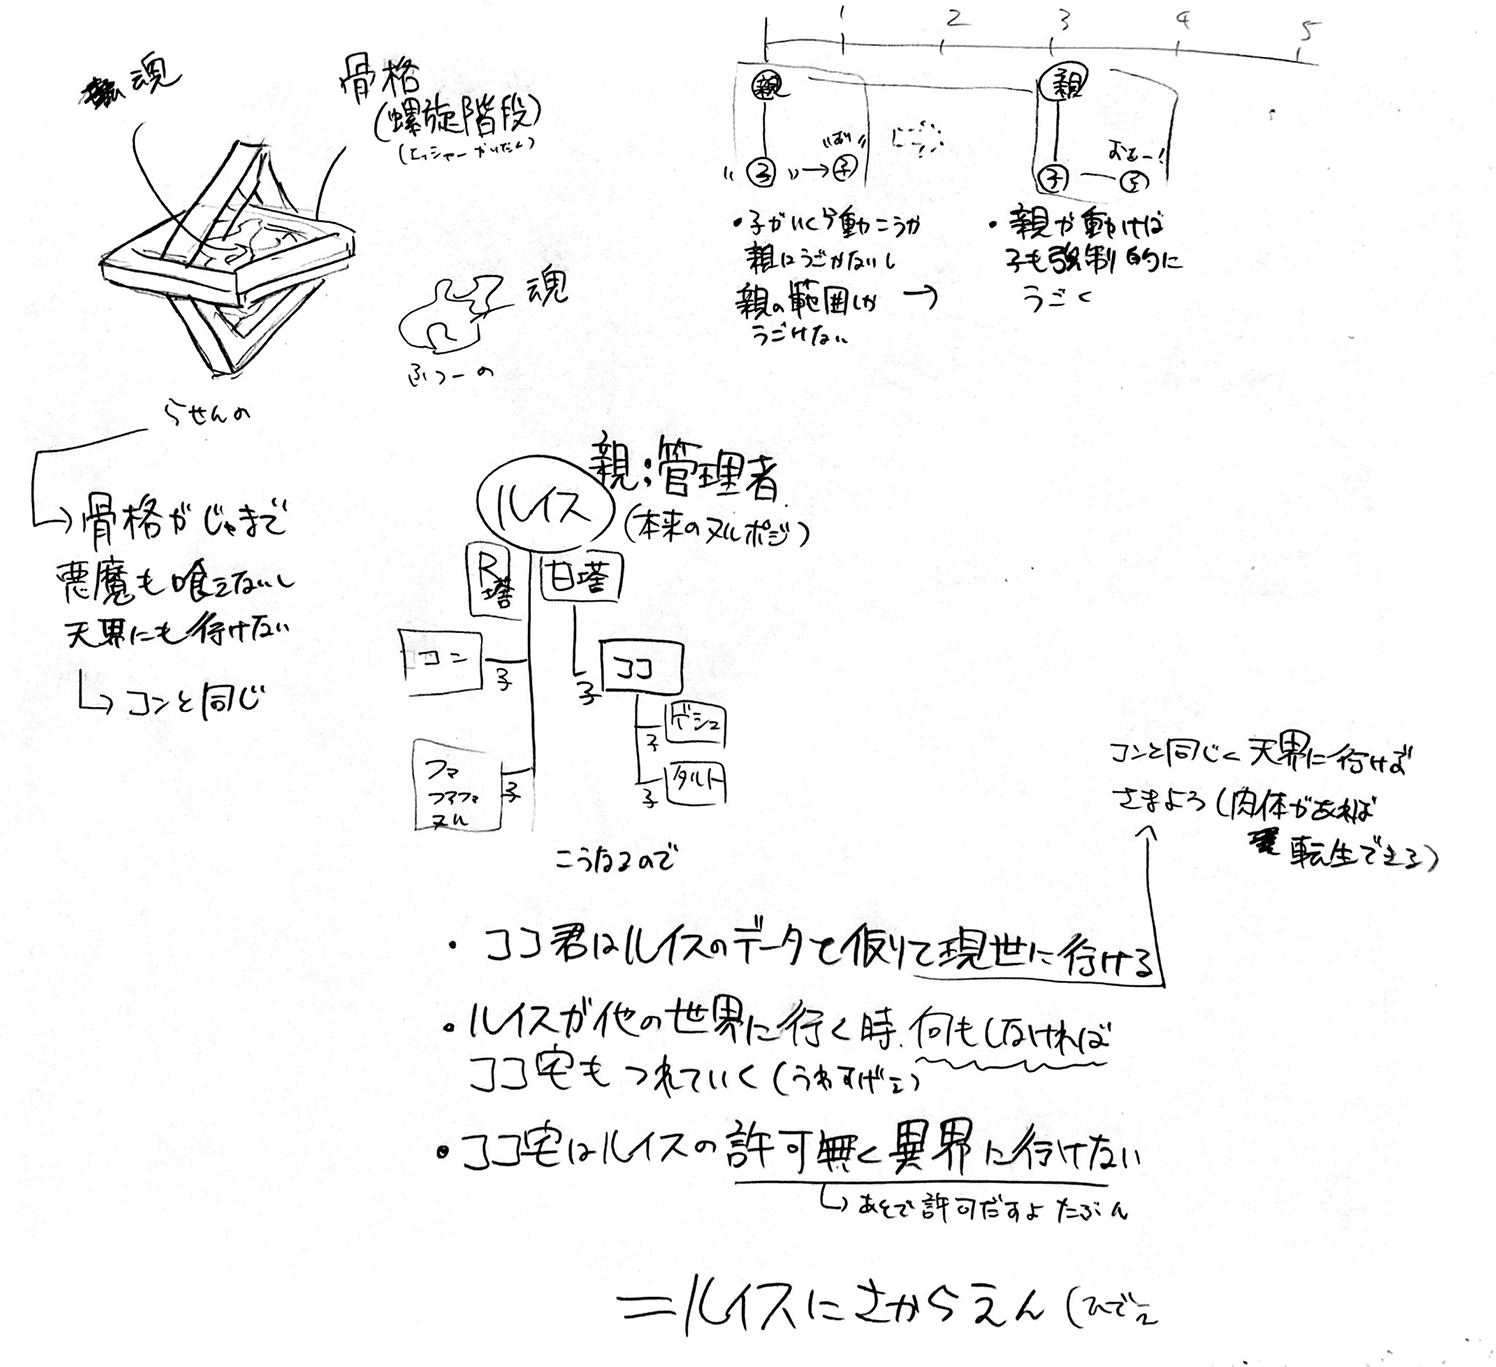 魂
骨格
(螺旋階段)
(エッシャーかいだん)
らせんの
魂
ふつーの
→骨格がじゃまで
悪魔も喰えないし
天界にも行けない
↳コンと同じ
1 2 3 4 5
親
子 → 子
親
子 子
・子がいくら動こうが
親はうごかないし
親の範囲しか →
うごけない
・親が動けば
子も強制的に
うごく
ルイス
親:管理者
(本来のヌルポジ)
R塔
甘塔
コン
子
ココ
子
ゲシュ
子
タルト
子
ファ
ファファ
ヌル
子
こうなるので
コンと同じく天界に行けば
さまよう(肉体があれば
転生できる)
・ココ君はルイスのデータを仮りて現世に行ける
・ルイスが他の世界に行く時、何もしなければ
ココ宅もつれていく
・ココ宅はルイスの許可無く異界に行けない
↳あとで許可だすよ たぶん
=ルイスにさからえん